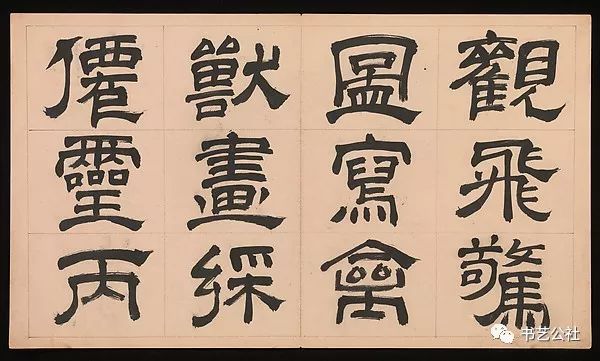 觀飛驚
圖寫禽
獸畫綵
僊靈丙
书艺公社